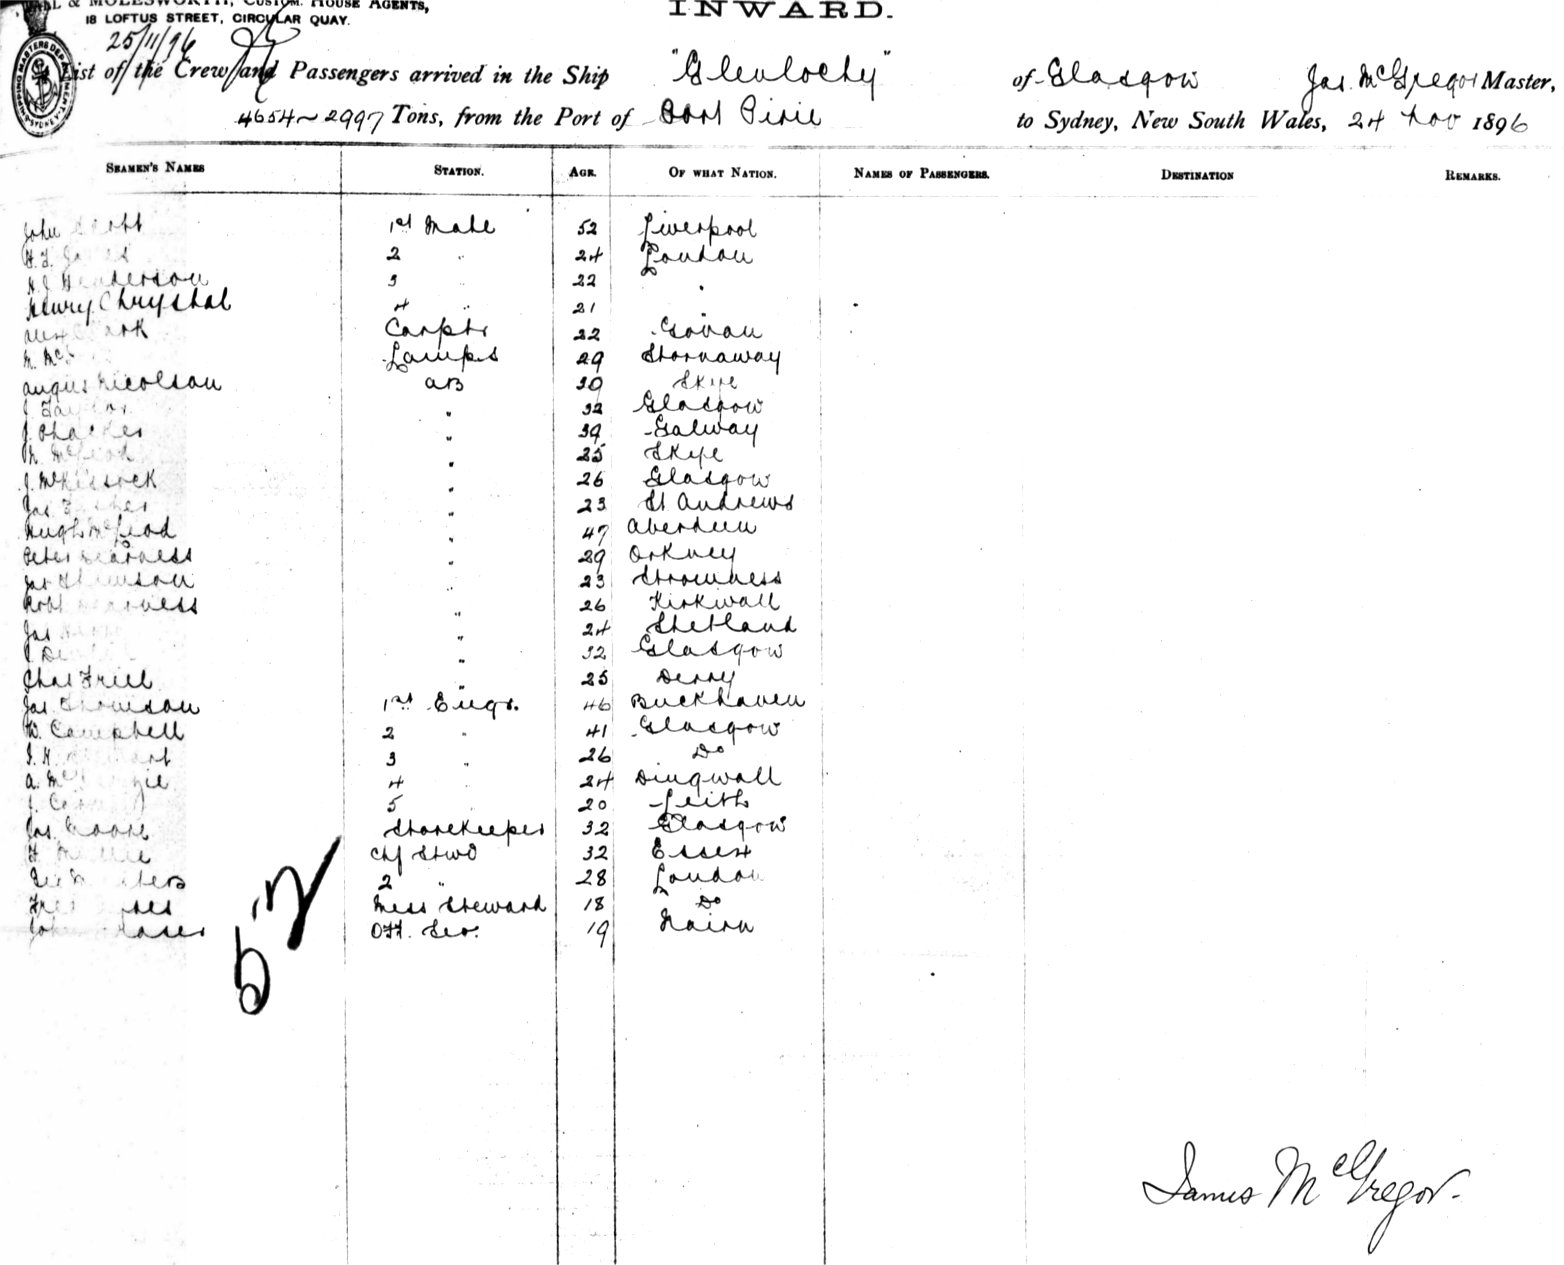 & MOLESWORTH, CUSTOM HOUSE AGENTS,
18 LOFTUS STREET, CIRCULAR QUAY.
INWARD.
25/11/96
List of the Crew and Passengers arrived in the Ship "Glenlochy" of Glasgow Jas. McGregor Master,
4654 ~ 2997 Tons, from the Port of Port Pirie to Sydney, New South Wales, 24 Nov 1896
SEAMEN'S NAMES STATION. AGE. OF WHAT NATION. NAMES OF PASSENGERS. DESTINATION REMARKS.
John Scott 1st Mate 52 Liverpool
2 " 24 London
Henderson 3 22 "
Henry Chrystal 4 " 21
Clark Carptr 22 Govan
Lamps 29 Stornaway
Angus Nicolson AB 30 Skye
J Taylor " 32 Glasgow
J. " 39 Galway
McLeod " 25 Skye
J. McKissock " 26 Glasgow
Jas " 23 St Andrews
Hugh McLeod " 47 Aberdeen
Peter " 29 Orkney
Jas " 23 Stromness
Robt " 26 Kirkwall
Jas " 24 Shetland
J. " 32 Glasgow
Chas Friel " 25 Derry
Jas. Thomson 1st Engr. 46 Buckhaven
W. Campbell 2 " 41 Glasgow
3 " 26 Do
A. 4 24 Dingwall
J. 5 20 Leith
Jas. Moore Storekeeper 32 Glasgow
Chf Stwd 32 Essex
2 " 28 London
Mess Steward 18 Do
John Off. Ser. 19 Nairn
52
James McGregor.